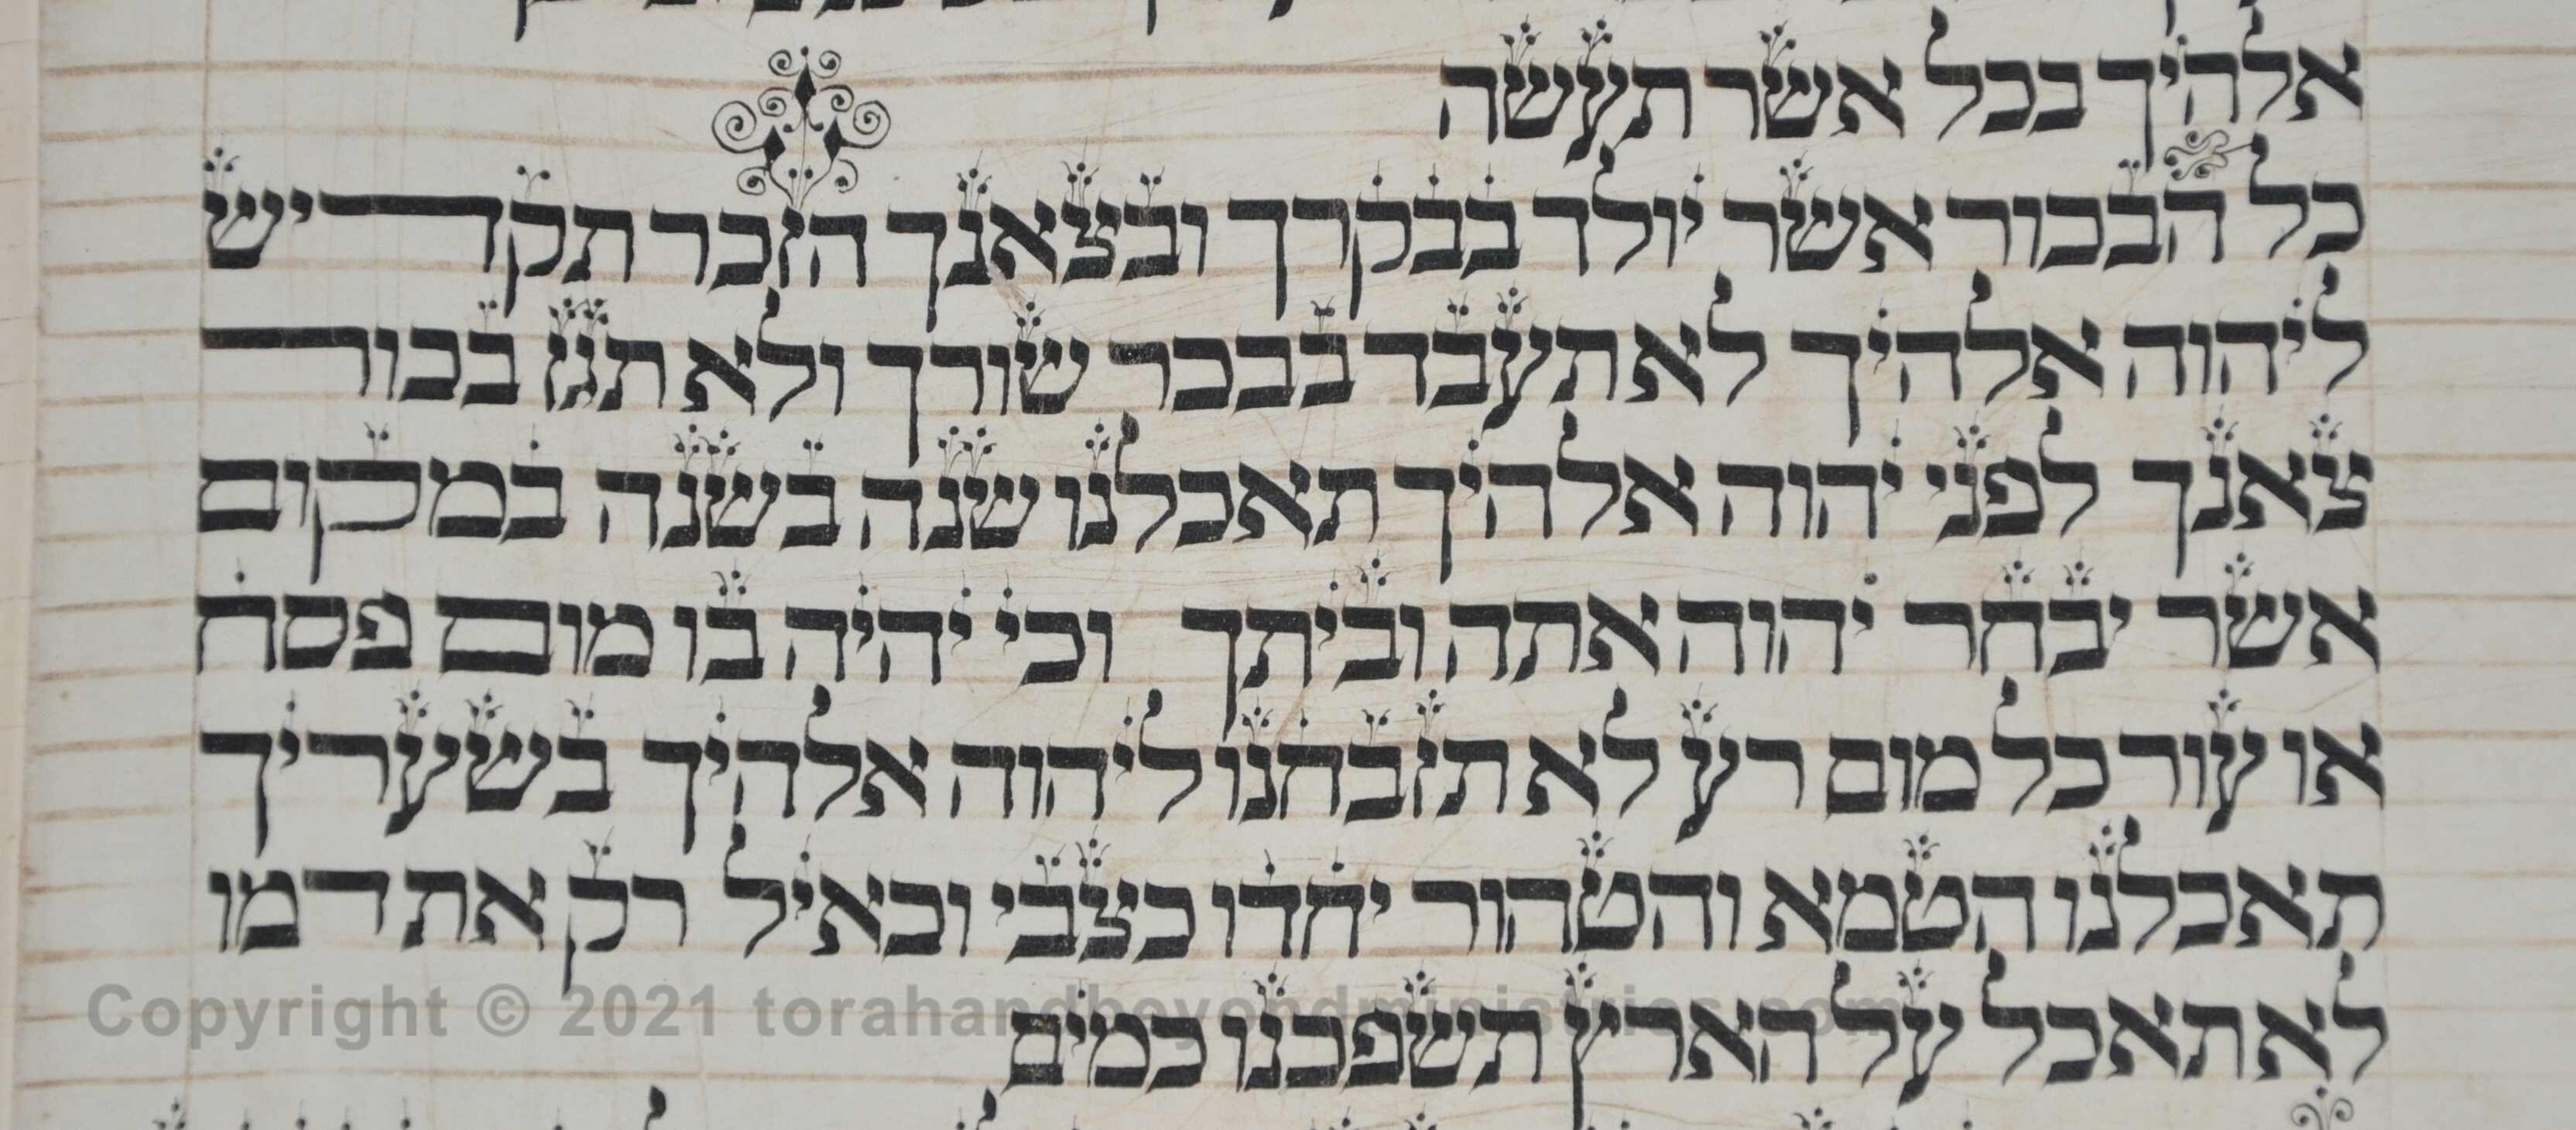 אלהיך בכל אשר תעשה
כל הבכור אשר יולד בבקרך ובצאנך הזכר תקדיש
ליהוה אלהיך לא תעבד בבכר שורך ולא תגז בכור
צאנך לפני יהוה אלהיך תאכלנו שנה בשנה במקום
אשר יבחר יהוה אתה וביתך וכי יהיה בו מום פסח
או עור כל מום רע לא תזבחנו ליהוה אלהיך בשעריך
תאכלנו הטמא והטהור יחדו כצבי וכאיל רק את דמו
לא תאכל על הארץ תשפכנו כמים
Copyright © 2021 torahandbeyondministries.com